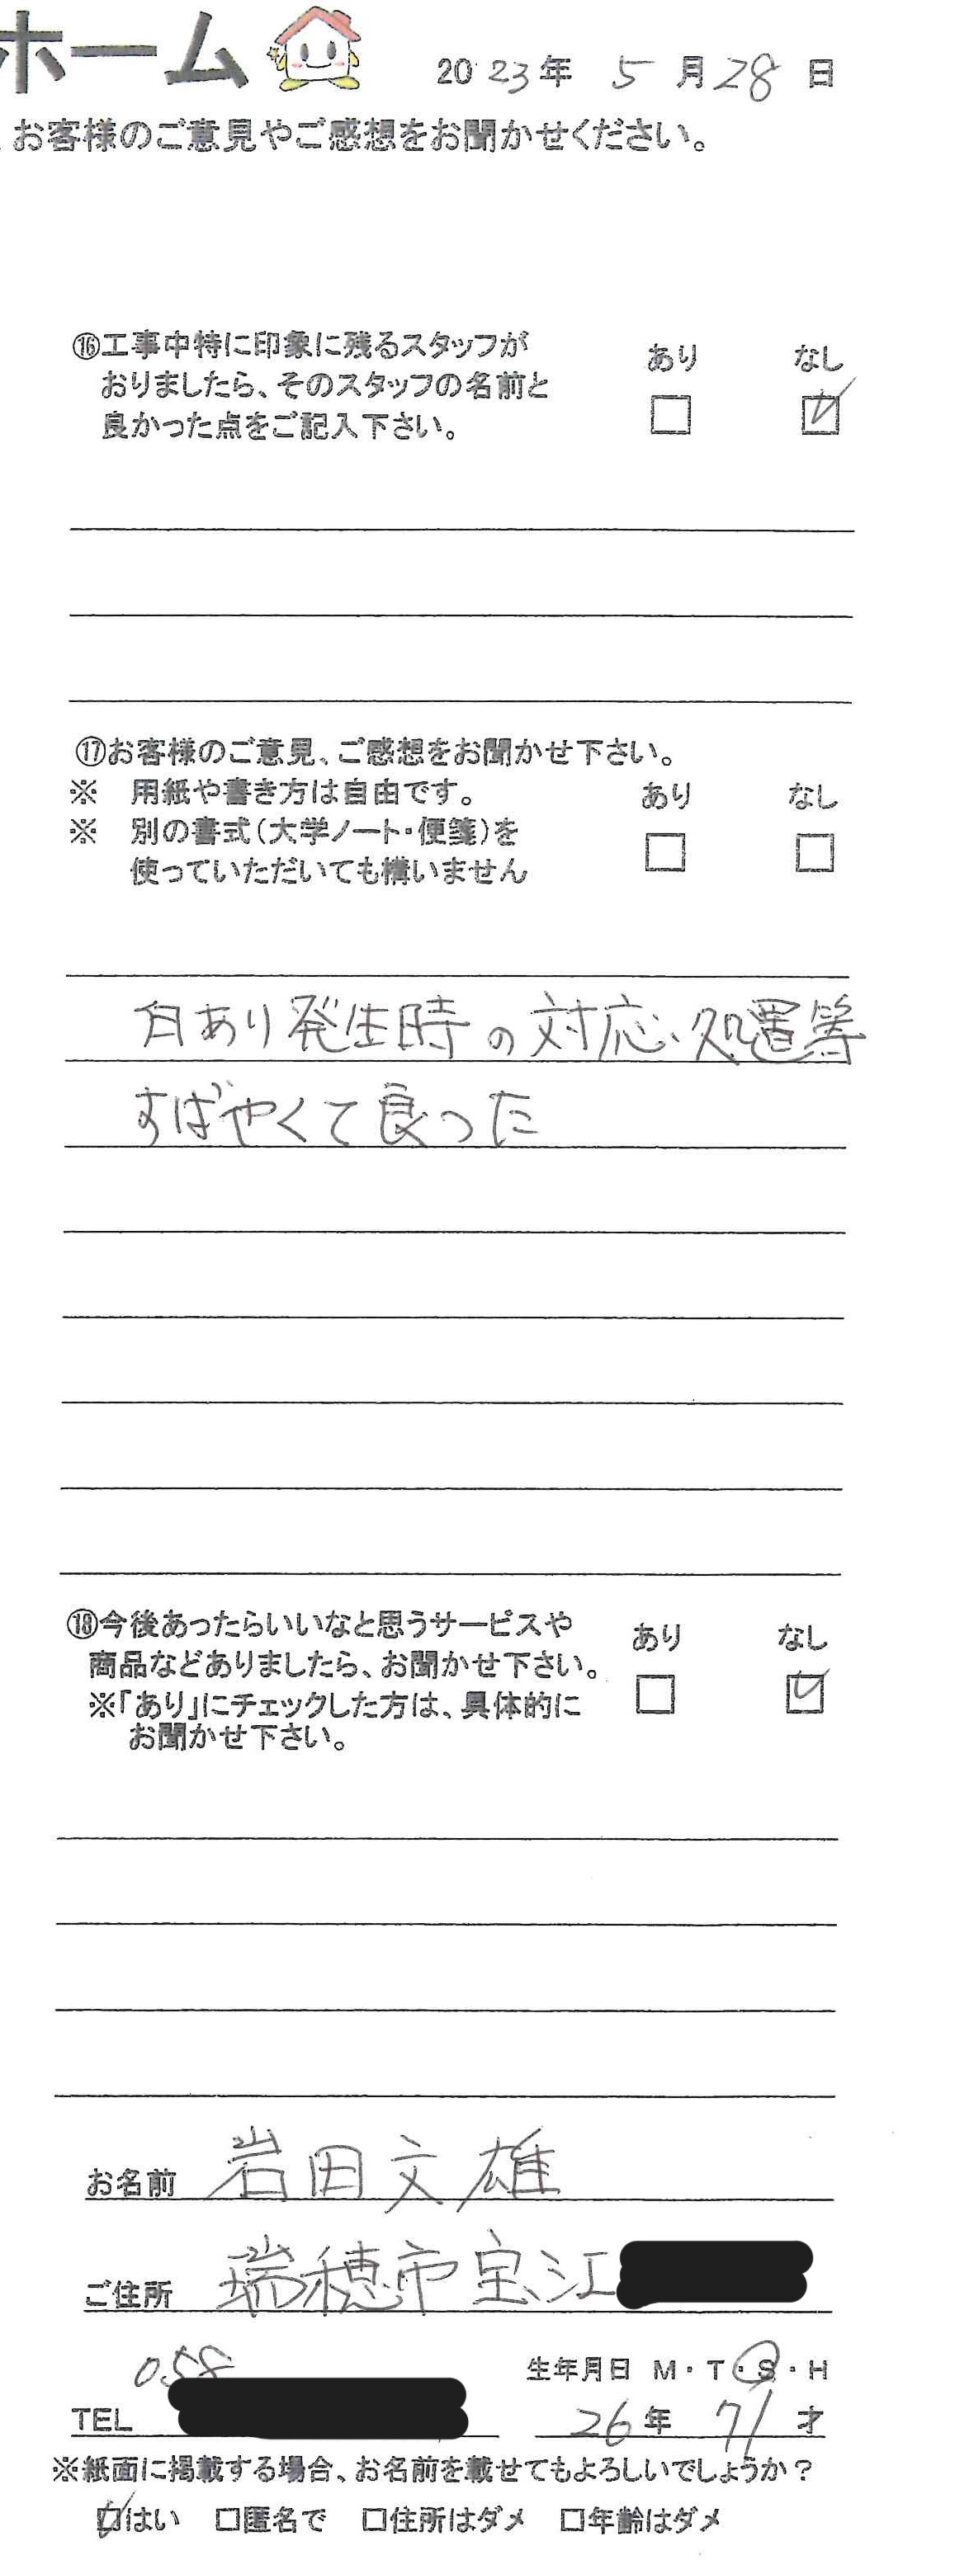 ホーム 2023年 5月28日
お客様のご意見やご感想をお聞かせください。
⑯工事中特に印象に残るスタッフが
おりましたら、そのスタッフの名前と
良かった点をご記入下さい。
あり なし
⑰お客様のご意見、ご感想をお聞かせ下さい。
※ 用紙や書き方は自由です。
※ 別の書式(大学ノート・便箋)を
使っていただいても構いません
あり なし
白あり発生時の対応、処置等
すばやくて良った
⑱今後あったらいいなと思うサービスや
商品などありましたら、お聞かせ下さい。
※「あり」にチェックした方は、具体的に
お聞かせ下さい。
あり なし
お名前 岩田文雄
ご住所 瑞穂市宝江
TEL 058
生年月日 M・T・S・H
26年 71才
※紙面に掲載する場合、お名前を載せてもよろしいでしょうか?
☑はい □匿名で □住所はダメ □年齢はダメ